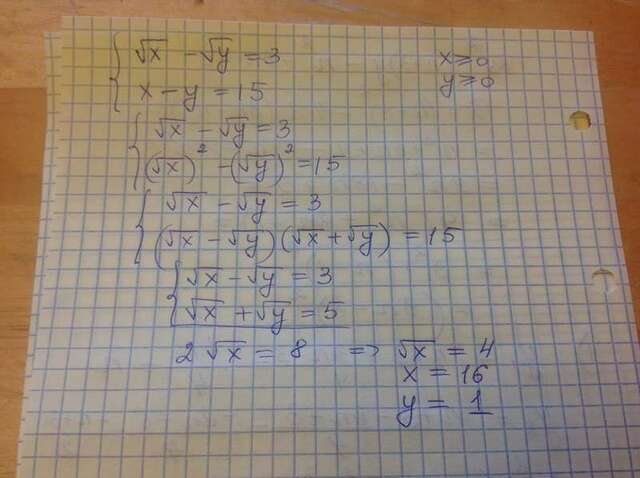 √x - √y = 3
x ≥ 0
x - y = 15
y ≥ 0
√x - √y = 3
(√x)² - (√y)² = 15
√x - √y = 3
(√x - √y)(√x + √y) = 15
√x - √y = 3
√x + √y = 5
2√x = 8 => √x = 4
x = 16
y = 1